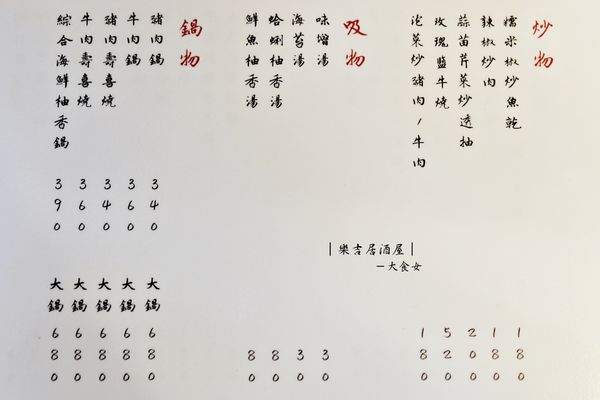 炒物
糯米椒炒魚乾 180
辣椒炒肉 180
蒜苗芹菜炒透抽 200
玫瑰鹽牛燒 520
泡菜炒豬肉/牛肉 180
吸物
味增湯 30
海苔湯 30
蛤蜊柚香湯 80
鮮魚柚香湯 80
鍋物
豬肉鍋 340 大鍋 680
牛肉鍋 360 大鍋 680
豬肉壽喜燒 340 大鍋 680
牛肉壽喜燒 360 大鍋 680
綜合海鮮柚香鍋 390 大鍋 680
|樂吉居酒屋|
–大食女